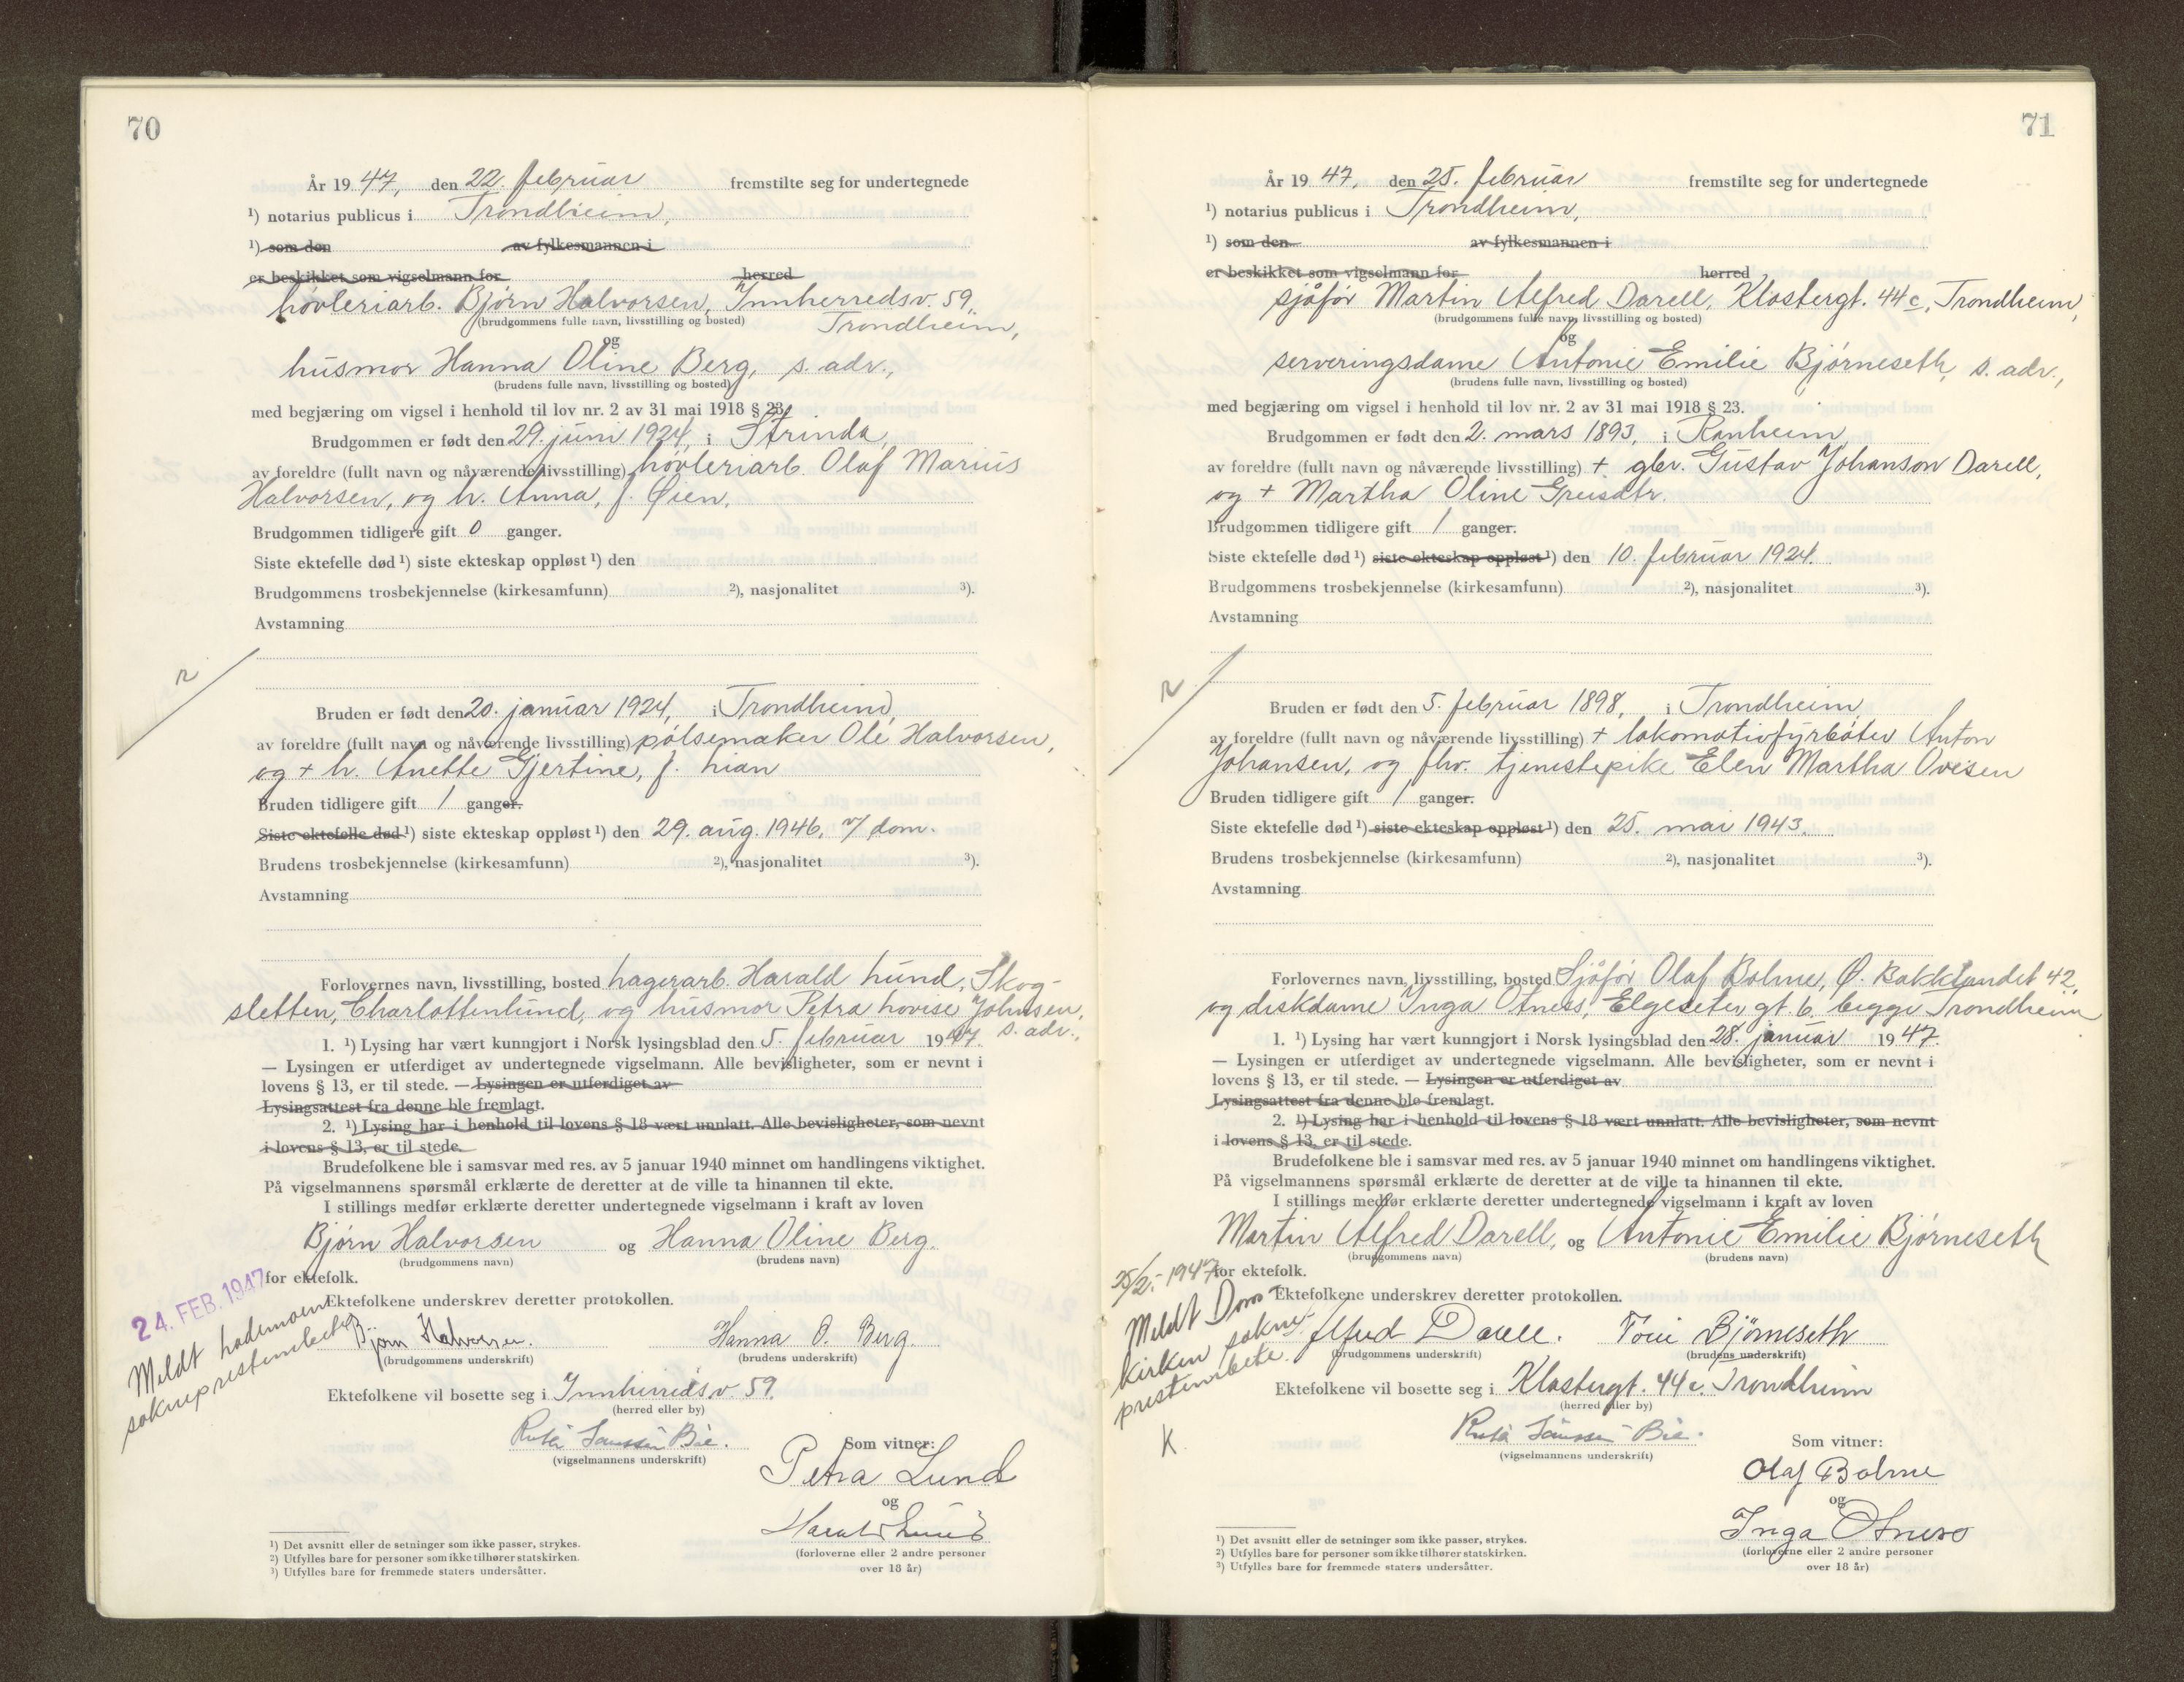 70
År 19 47, den 22. februar fremstilte seg for undertegnede
¹) notarius publicus i Trondheim,
¹) som den av fylkesmannen i
er beskikket som vigselmann for herred
høvleriarb. Bjørn Halvorsen, Innherredsv. 59,
(brudgommens fulle navn, livsstilling og bosted) Trondheim,
og
husmor Hanna Oline Berg, s. adr.,
(brudens fulle navn, livsstilling og bosted)
med begjæring om vigsel i henhold til lov nr. 2 av 31 mai 1918 § 23.
Brudgommen er født den 29. juni 1924, i Strinda,
av foreldre (fullt navn og nåværende livsstilling) høvleriarb. Olaf Marius
Halvorsen, og h. Anna, f. Øien.
Brudgommen tidligere gift 0 ganger.
Siste ektefelle død ¹) siste ekteskap oppløst ¹) den
Brudgommens trosbekjennelse (kirkesamfunn) ²), nasjonalitet ³).
Avstamning
Bruden er født den 20. januar 1924, i Trondheim,
av foreldre (fullt navn og nåværende livsstilling) pølsemaker Ole Halvorsen,
og + h. Anette Gjertine, f.
Bruden tidligere gift 1 ganger.
Siste ektefelle død ¹) siste ekteskap oppløst ¹) den 29. aug. 1946, v/ dom.
Brudens trosbekjennelse (kirkesamfunn) ²), nasjonalitet ³).
Avstamning
Forlovernes navn, livsstilling, bosted lagerarb. Harald Lund, Skog-
sletten, Charlottenlund, og husmor Petra Lovise Johnsen,
s. adr.,
1. ¹) Lysing har vært kunngjort i Norsk lysingsblad den 5. februar 1947.
— Lysingen er utferdiget av undertegnede vigselmann. Alle bevisligheter, som er nevnt i
lovens § 13, er til stede. — Lysingen er utferdiget av
Lysingsattest fra denne ble fremlagt.
2. ¹) Lysing har i henhold til lovens § 18 vært unnlatt. Alle bevisligheter, som nevnt
i lovens § 13, er til stede.
Brudefolkene ble i samsvar med res. av 5 januar 1940 minnet om handlingens viktighet.
På vigselmannens spørsmål erklærte de deretter at de ville ta hinannen til ekte.
I stillings medfør erklærte deretter undertegnede vigselmann i kraft av loven
Bjørn Halvorsen og Hanna Oline Berg.
(brudgommens navn) (brudens navn)
for ektefolk.
24. FEB. 1947
Ektefolkene underskrev deretter protokollen.
Meldt Lademoen
sokneprestembete
Bjørn Halvorsen. Hanna O. Berg.
(brudgommens underskrift) (brudens underskrift)
Ektefolkene vil bosette seg i Innherredsv. 59.
(herred eller by)
Bie.
(vigselmannens underskrift)
Som vitner:
Petra Lund
og
Harald Lund
(forloverne eller 2 andre personer
over 18 år)
¹) Det avsnitt eller de setninger som ikke passer, strykes.
²) Utfylles bare for personer som ikke tilhører statskirken.
³) Utfylles bare for fremmede staters undersåtter.
71
År 19 47, den 25. februar fremstilte seg for undertegnede
¹) notarius publicus i Trondheim,
¹) som den av fylkesmannen i
er beskikket som vigselmann for herred
sjåfør Martin Alfred Darell, Klostergt. 44c, Trondheim,
(brudgommens fulle navn, livsstilling og bosted)
og
serveringsdame Antonie Emilie Bjørneseth, s. adr.,
(brudens fulle navn, livsstilling og bosted)
med begjæring om vigsel i henhold til lov nr. 2 av 31 mai 1918 § 23.
Brudgommen er født den 2. mars 1893, i Ranheim,
av foreldre (fullt navn og nåværende livsstilling) + gbr. Gustav Johanson Darell,
og + Martha Oline Greisdtr.
Brudgommen tidligere gift 1 ganger.
Siste ektefelle død ¹) siste ekteskap oppløst ¹) den 10. februar 1924.
Brudgommens trosbekjennelse (kirkesamfunn) ²), nasjonalitet ³).
Avstamning
Bruden er født den 5. februar 1898, i Trondheim,
av foreldre (fullt navn og nåværende livsstilling) + lokomotivfyrbøter Anton
Johansen, og fhv. tjenestepike Elen Martha Ovesen
Bruden tidligere gift 1 ganger.
Siste ektefelle død ¹) siste ekteskap oppløst ¹) den 25. mai 1943.
Brudens trosbekjennelse (kirkesamfunn) ²), nasjonalitet ³).
Avstamning
Forlovernes navn, livsstilling, bosted Sjåfør Olaf Bolme, Ø. Bakklandet 42,
og diskdame Inga Otness, Elgeseter gt. 6. begge Trondheim
1. ¹) Lysing har vært kunngjort i Norsk lysingsblad den 28. januar 1947.
— Lysingen er utferdiget av undertegnede vigselmann. Alle bevisligheter, som er nevnt i
lovens § 13, er til stede. — Lysingen er utferdiget av
Lysingsattest fra denne ble fremlagt.
2. ¹) Lysing har i henhold til lovens § 18 vært unnlatt. Alle bevisligheter, som nevnt
i lovens § 13, er til stede.
Brudefolkene ble i samsvar med res. av 5 januar 1940 minnet om handlingens viktighet.
På vigselmannens spørsmål erklærte de deretter at de ville ta hinannen til ekte.
I stillings medfør erklærte deretter undertegnede vigselmann i kraft av loven
Martin Alfred Darell, og Antonie Emilie Bjørneseth
(brudgommens navn) (brudens navn)
for ektefolk.
25/2.- 1947
Ektefolkene underskrev deretter protokollen.
Meldt Dom-
kirken sokne-
prestembete.
K.
Alfred Darell. Toni Bjørneseth
(brudgommens underskrift) (brudens underskrift)
Ektefolkene vil bosette seg i Klostergt. 44c. Trondheim
(herred eller by)
Bie.
(vigselmannens underskrift)
Som vitner:
Olaf Bolme
og
Inga Otness
(forloverne eller 2 andre personer
over 18 år)
¹) Det avsnitt eller de setninger som ikke passer, strykes.
²) Utfylles bare for personer som ikke tilhører statskirken.
³) Utfylles bare for fremmede staters undersåtter.